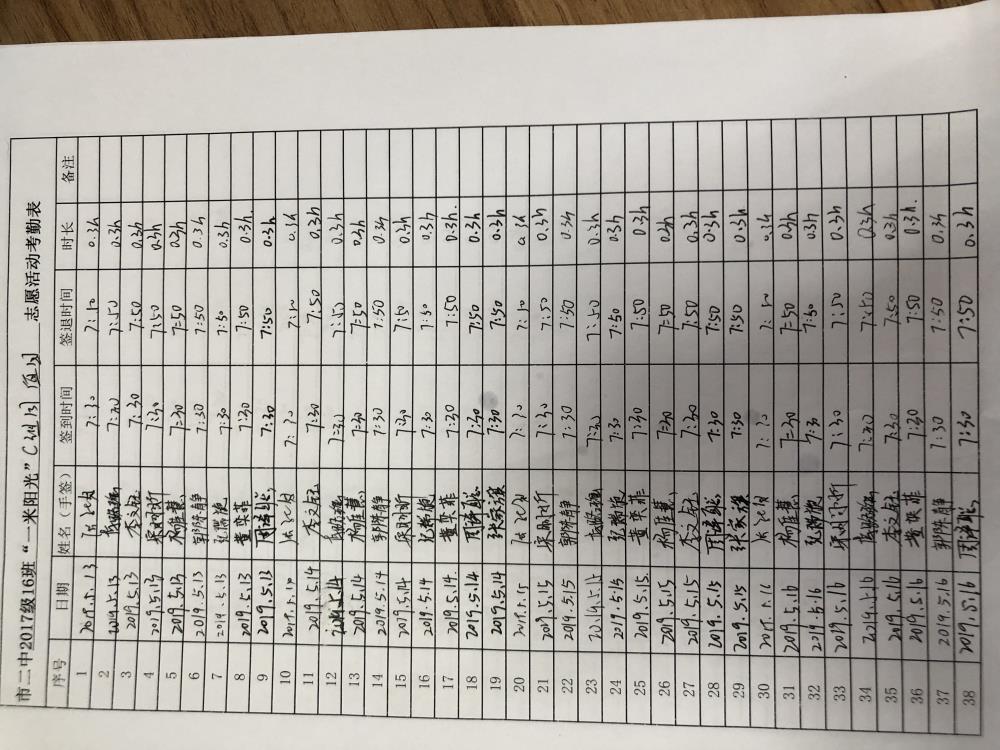 市二中2017级16班“一米阳光” 志愿活动考勤表
序号 日期 姓名（手签） 签到时间 签退时间 时长 备注
1 2019.5.13 7:30 7:50 0.3h
2 2019.5.13 7:30 7:50 0.3h
3 2019.5.13 李文钰 7:30 7:50 0.3h
4 2019.5.13 7:30 7:50 0.3h
5 2019.5.13 杨佳慧 7:30 7:50 0.3h
6 2019.5.13 郭静静 7:30 7:50 0.3h
7 2019.5.13 7:30 7:50 0.3h
8 2019.5.13 黄奕菲 7:30 7:50 0.3h.
9 2019.5.13 7:30 7:50 0.3h
10 7:30 7:50 0.3h
11 2019.5.14 李文钰 7:30 7:50 0.3h
12 2019.5.14 7:30 7:50 0.3h
13 2019.5.14 杨佳慧 7:30 7:50 0.3h
14 2019.5.14 郭静静 7:30 7:50 0.3h
15 2019.5.14 7:30 7:50 0.3h
16 2019.5.14 7:30 7:50 0.3h
17 2019.5.14. 黄奕菲 7:30 7:50 0.3h.
18 2019.5.14 7:30 7:50 0.3h
19 2019.5.14 张家颖 7:30 7:50 0.3h
20 2019.5.15 7:30 7:50 0.3h
21 2019.5.15 7:30 7:50 0.3h
22 2019.5.15 郭静静 7:30 7:50 0.3h
23 2019.5.15 7:30 7:50 0.3h
24 2019.5.15 7:30 7:50 0.3h
25 2019.5.15. 黄奕菲 7:30 7:50 0.3h
26 2019.5.15 杨佳慧 7:30 7:50 0.3h
27 2019.5.15 李文钰 7:30 7:50 0.3h
28 2019.5.15 7:30 7:50 0.3h
29 2019.5.15 张家颖 7:30 7:50 0.3h
30 2019.5.16 7:30 7:50 0.3h
31 2019.5.16 杨佳慧 7:30 7:50 0.3h
32 2019.5.16 7:30 7:50 0.3h
33 2019.5.16 7:30 7:50 0.3h
34 2019.5.16 7:30 7:50 0.3h
35 2019.5.16 李文钰 7:30 7:50 0.3h
36 2019.5.16 黄奕菲 7:30 7:50 0.3h.
37 2019.5.16 郭静静 7:30 7:50 0.3h
38 2019.5.16 7:30 7:50 0.3h